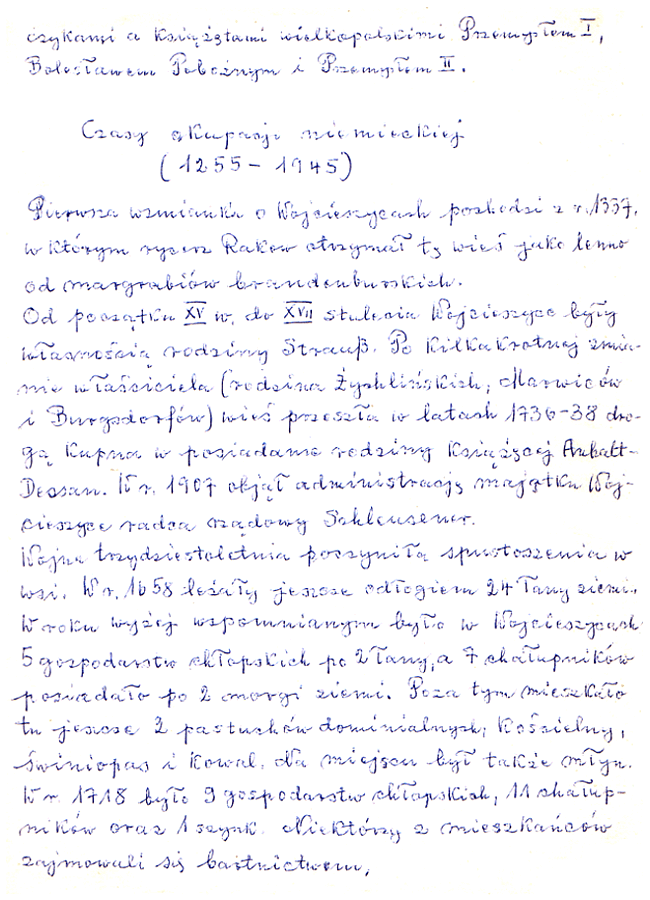 czykami a książętami wielkopolskimi Przemysłem I,
Bolesławem Pobożnym i Przemysłem II.
Czasy okupacji niemieckiej
(1255 - 1945)
Pierwsza wzmianka o Wojcieszycach pochodzi z r. 1337,
w którym rycerz Rakow otrzymał tę wieś jako lenno
od margrabiów brandenburskich.
Od początku XV w. do XVII stulecia Wojcieszyce były
własnością rodziny Strauß. Po kilkakrotnej zmia-
nie właściciela (rodzina Żychlińskich, Marwiców
i Burgsdorfów) wieś przeszła w latach 1736-38 dro-
gą kupna w posiadanie rodziny książęcej Anhalt-
Dessau. W r. 1907 objął administrację majątku Woj-
cieszyce radca rządowy Schleusener.
Wojna trzydziestoletnia poczyniła spustoszenia w
wsi. W r. 1658 leżały jeszcze odłogiem 24 łany ziemi.
W roku wyżej wspomnianym było w Wojcieszycach
5 gospodarstw chłopskich po 2 łany, a 7 chałupników
posiadało po 2 morgi ziemi. Poza tym mieszkało
tu jeszcze 2 pastuchów dominialnych, kościelny,
świniopas i kowal. Na miejscu był także młyn.
W r. 1718 było 9 gospodarstw chłopskich, 11 chałup-
ników oraz 1 szynk. Niektórzy z mieszkańców
zajmowali się bartnictwem,